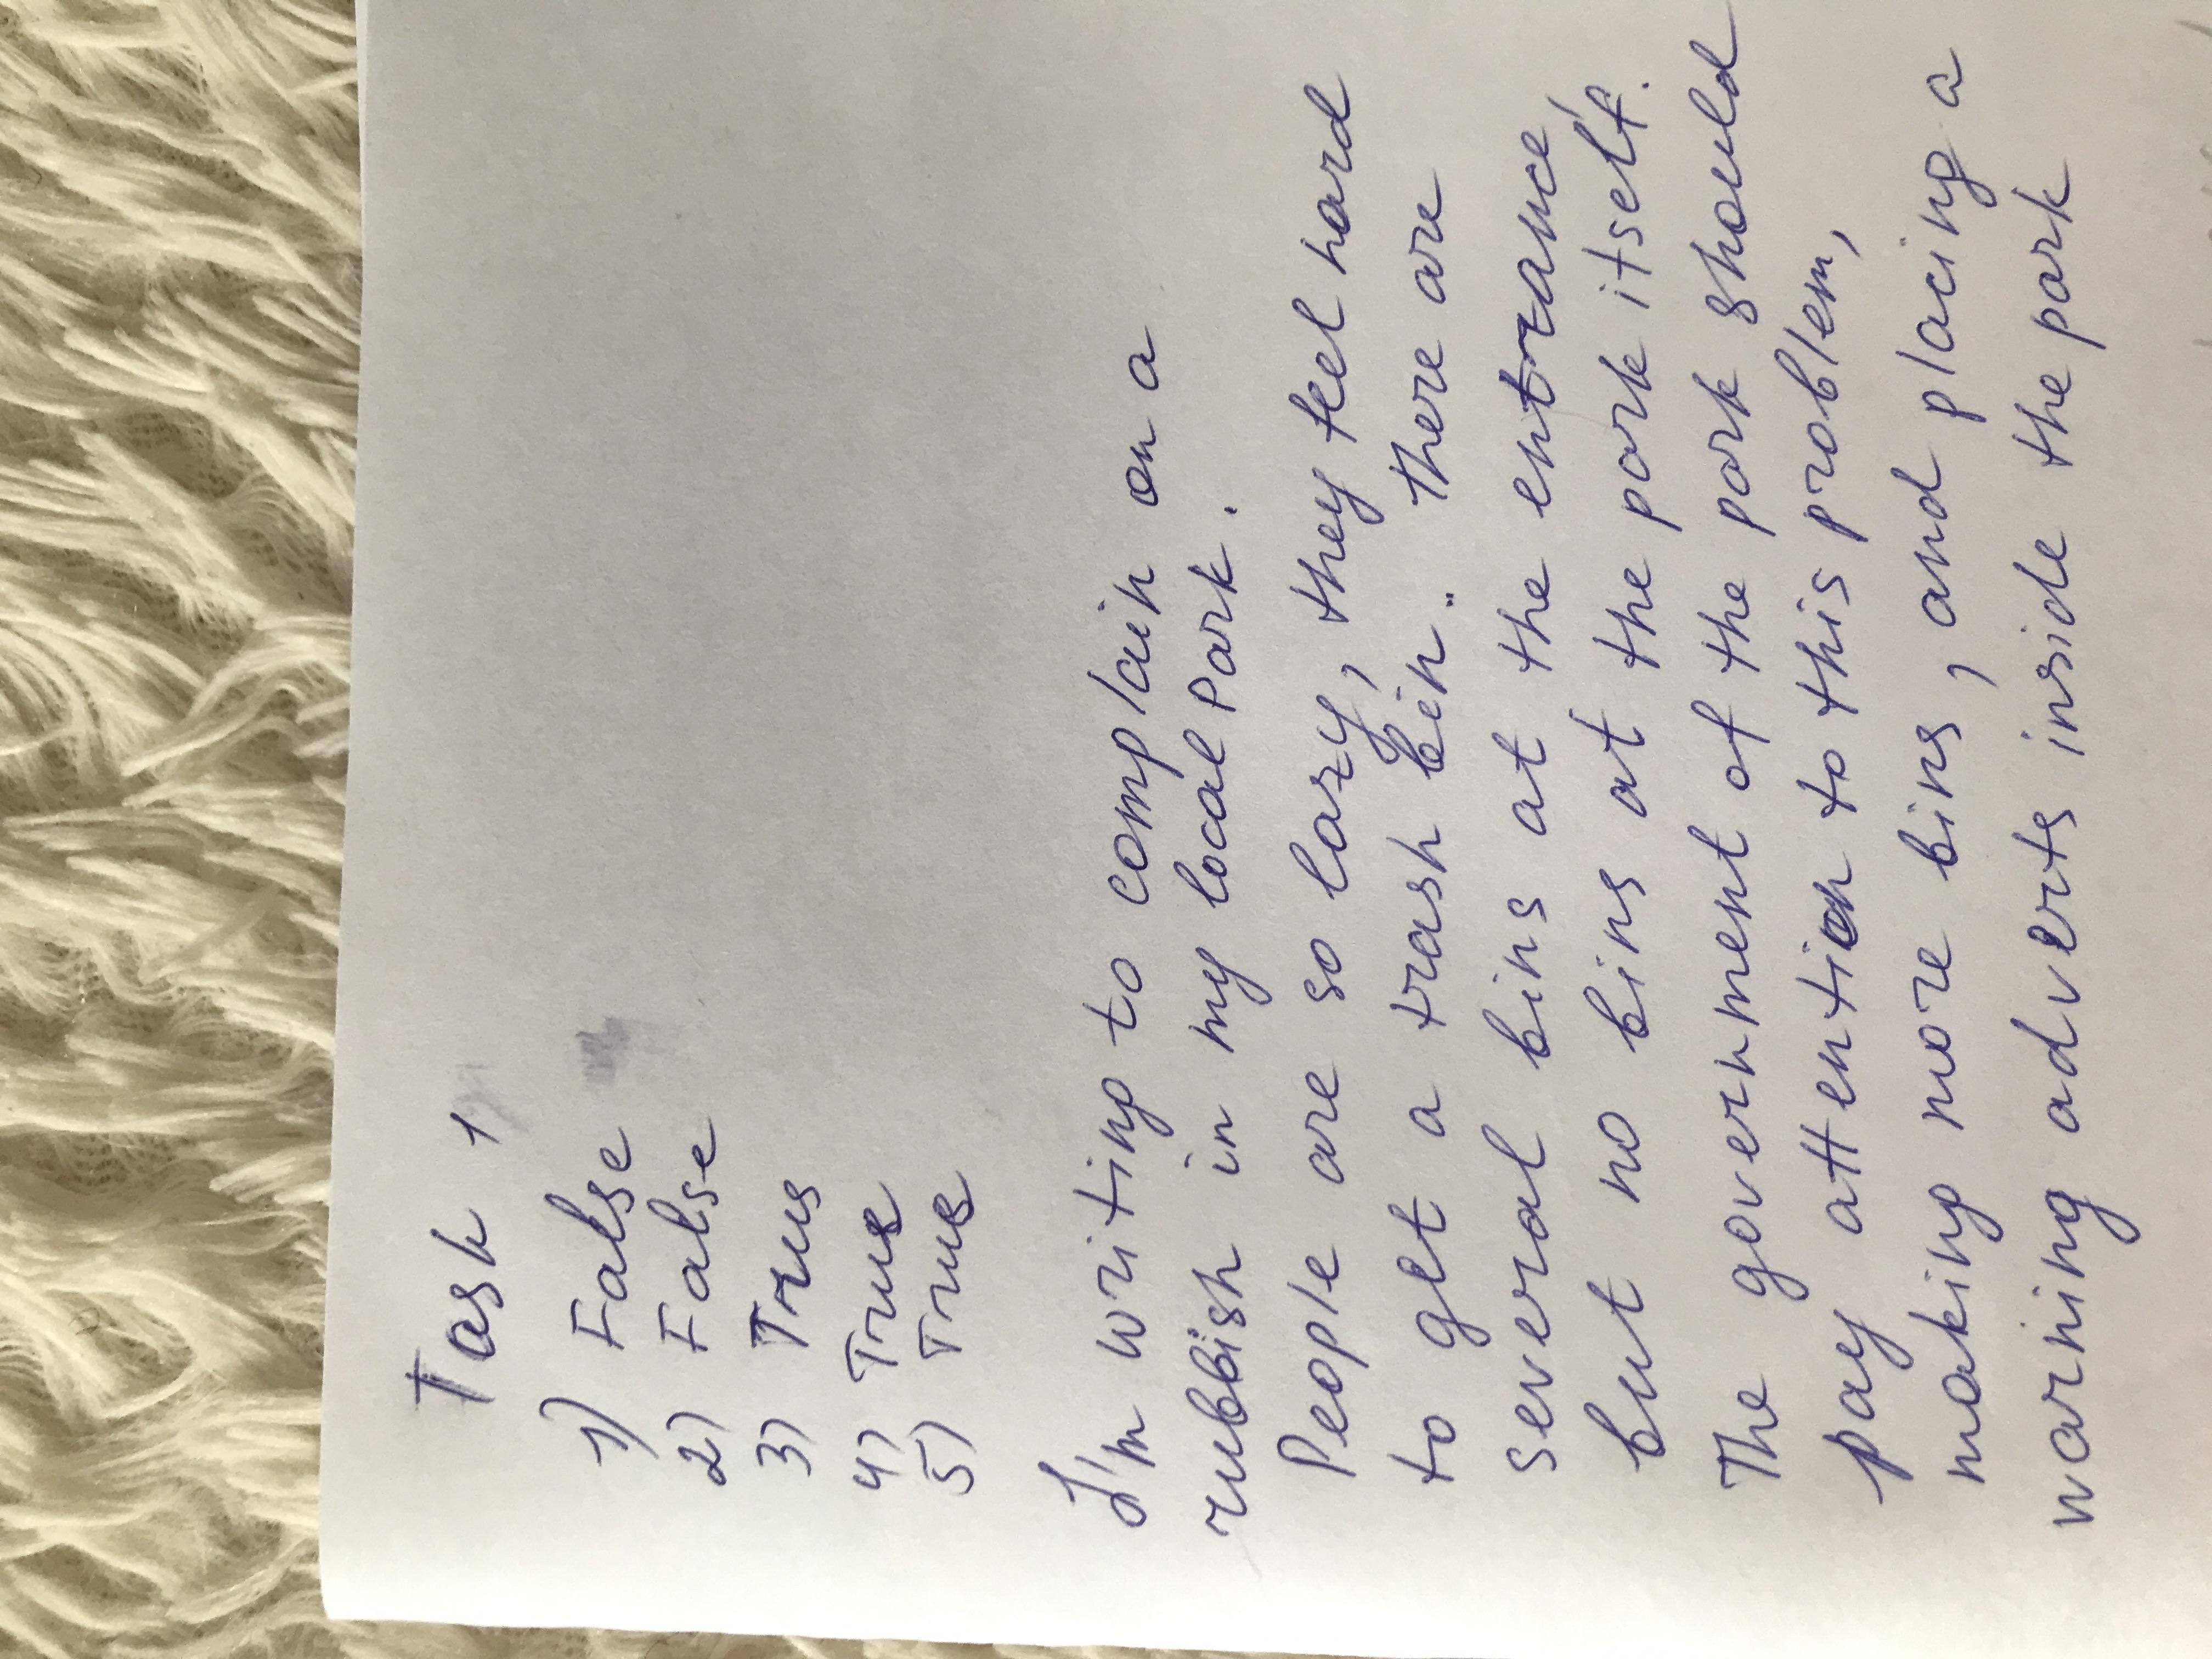 Task 1
1) False
2) False
3) True
4) True
5) True
I'm writing to complain on a
rubbish in my local Park.
People are so lazy, they feel hard
to get a trash bin. There are
several bins at the entrance,
but no bins at the park itself.
The government of the park should
pay attention to this problem,
making more bins, and placing a
warning adverts inside the park